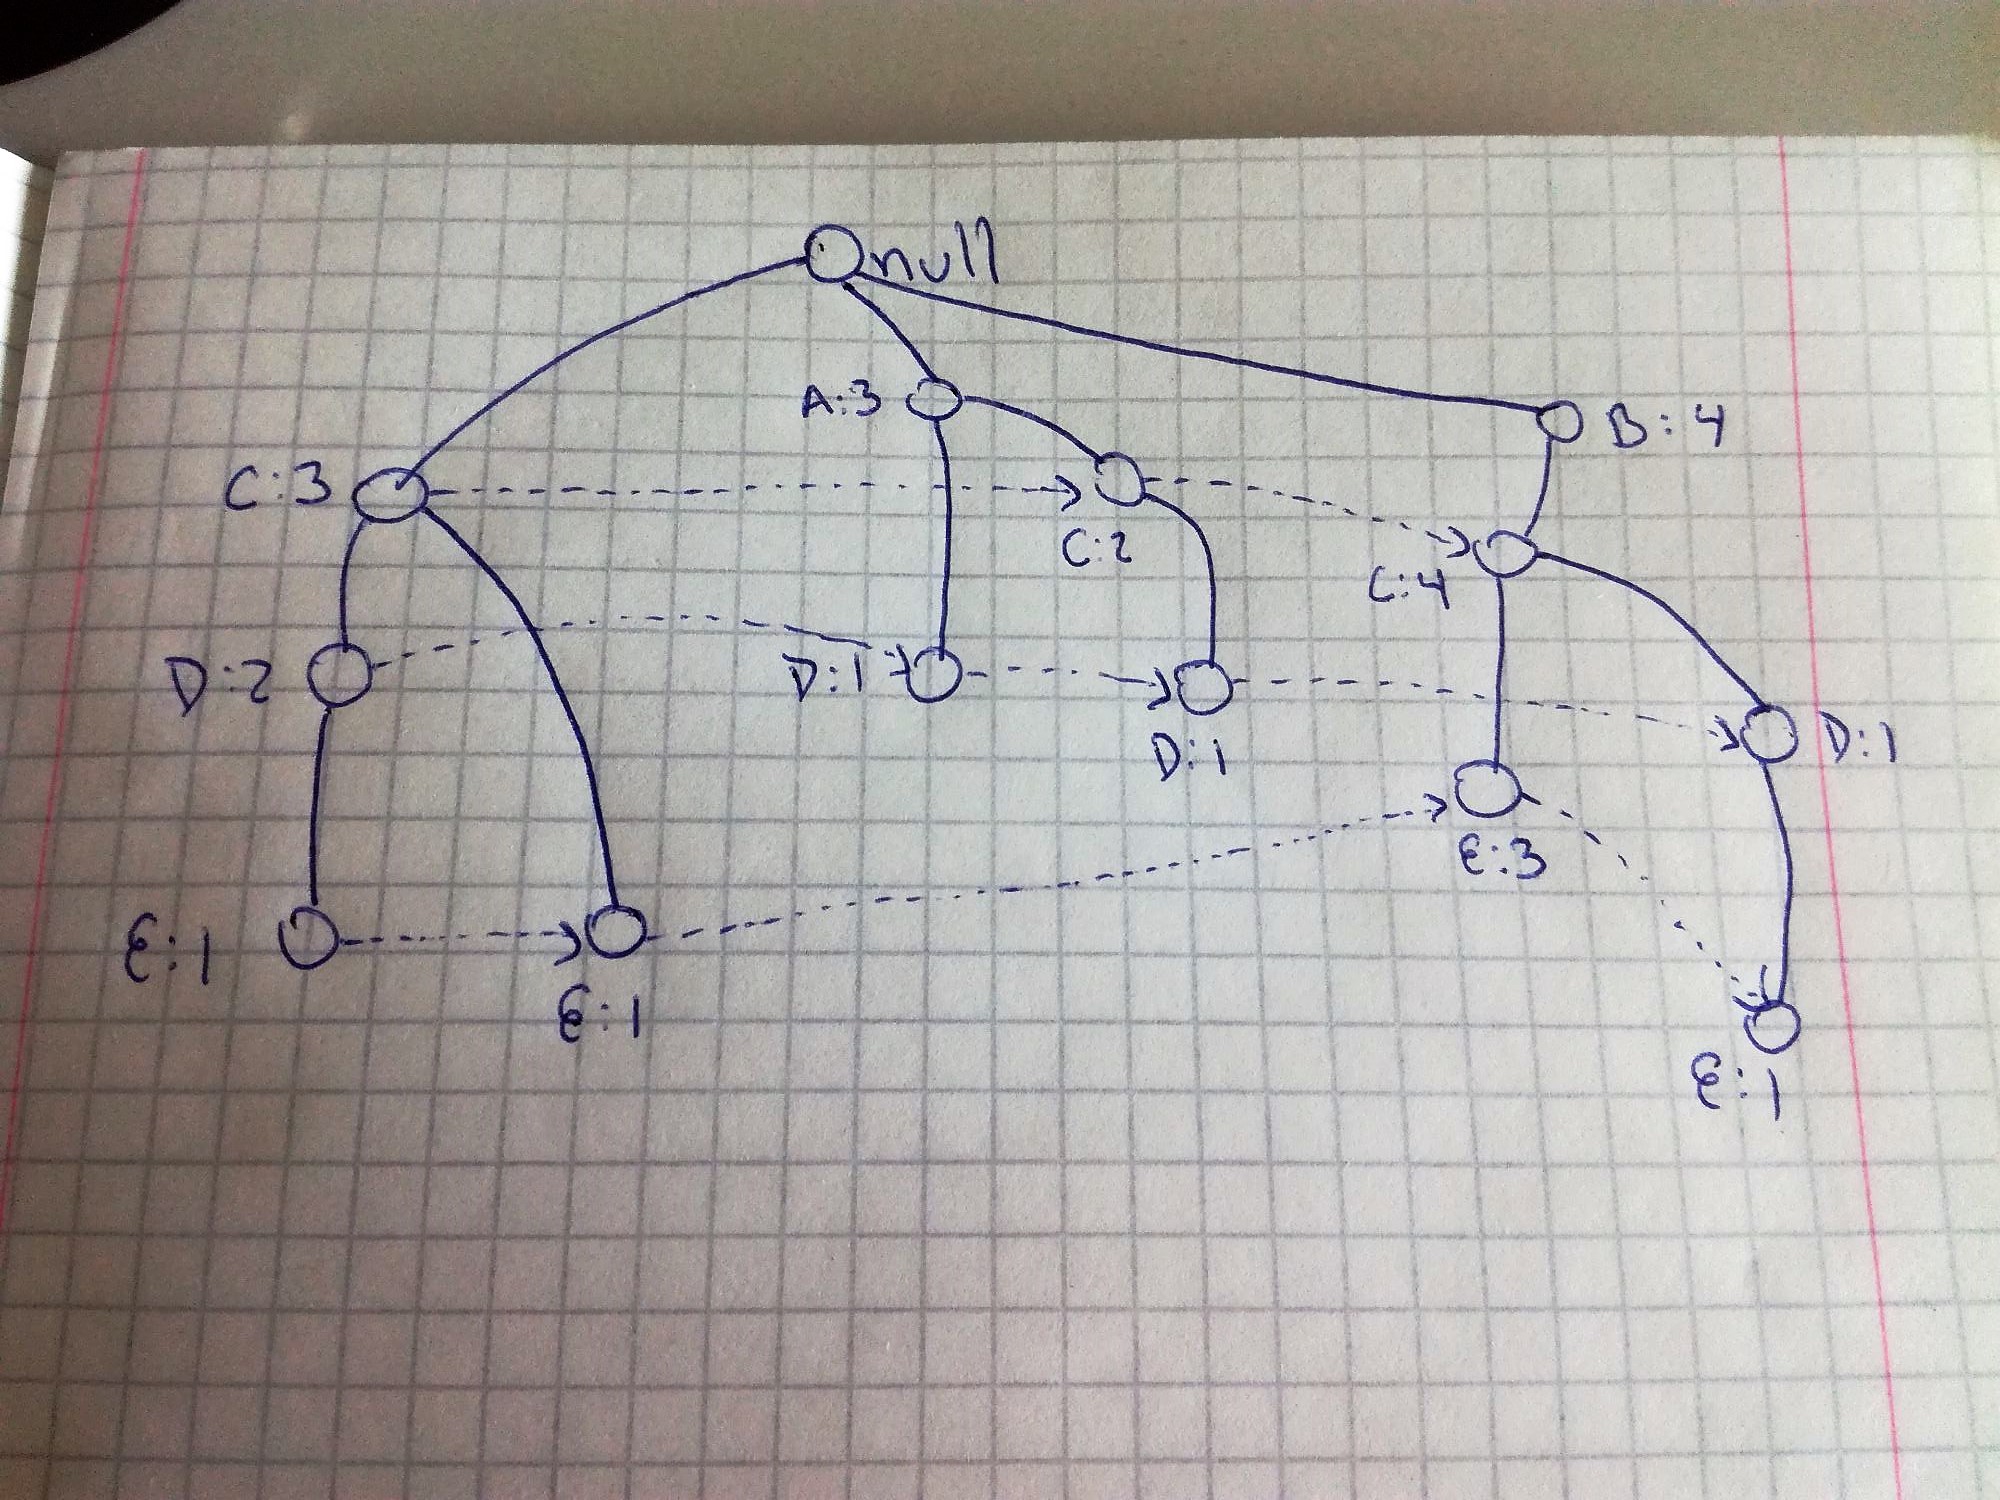 null
A:3
B:4
C:3
C:2
C:4
D:2
D:1
D:1
D:1
E:3
E:1
E:1
E:1